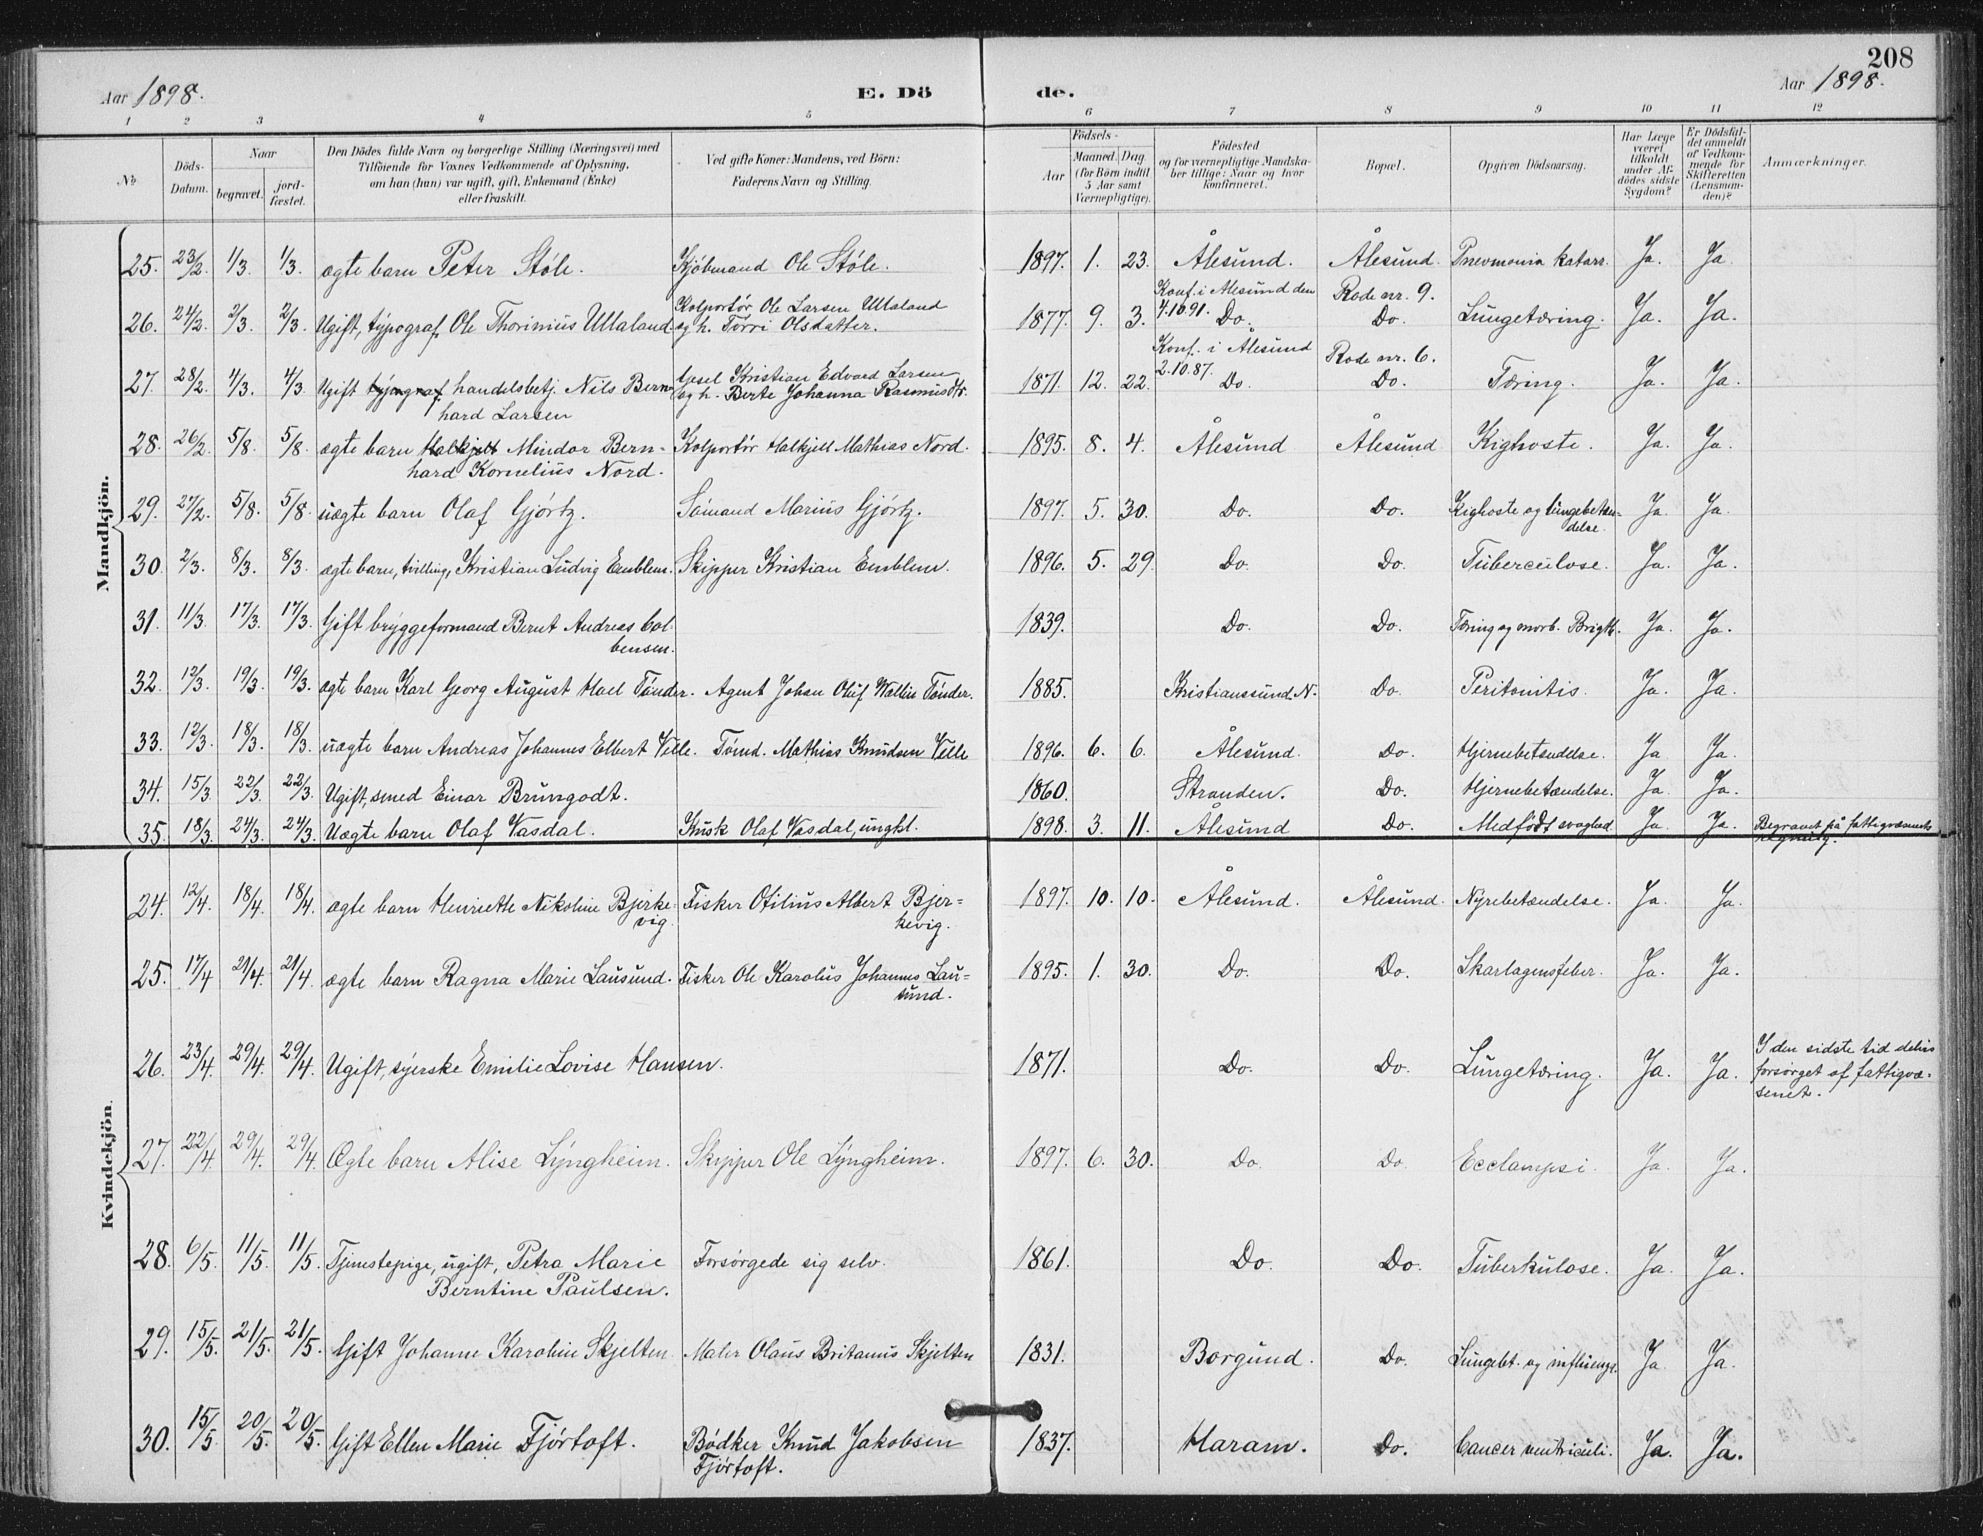 208
Aar 1898. E. Dö de. Aar 1898.
1 2 3 4 5 6 7 8 9 10 11 12
No Döds-Datum. Naar begravet. jordfæstet. Den Dödes fulde Navn og borgerlige Stilling (Næringsvei) med Tilföiende for Voxnes Vedkommende af Oplysning, om han (hun) var ugift, gift, Enkemand (Enke) eller fraskilt. Ved gifte Koner: Mandens, ved Börn: Faderens Navn og Stilling. Födsels- Aar Maaned. Dag. (for Börn indtil 5 Aar samt Værnepligtige). Födested og for værnepligtige Mandskaber tillige: Naar og hvor konfirmeret. Bopæl. Opgiven Dödsaarsag. Har Læge været tilkaldt under Afdödes sidste Sygdom? Er Dödsfaldet anmeldt af Vedkommende for Skifteretten (Lensmanden)? Anmærkninger.
Mandkjön.
25. 23/2. 1/3. 1/3. ægte barn Peter Støle. Kjöbmand Ole Støle. 1897. 1. 23. Ålesund. Ålesund. Pnevmonia katarr. Ja. Ja.
26. 24/2. 2/3. 2/3. Ugift, typograf Ole Thorinius Ullaland Kolportør Ole Larsen Ullaland og h. Torri Olsdatter. 1877. 9. 3. Konf. i Ålesund den 4.10.91. Do. Rode nr. 9. Do. Lungetæring. Ja. Ja.
27. 28/2. 4/3. 4/3. Ugift typograf handelsbetj. Nils Bernhard Larsen Kristian Edvard Larsen og h. Berte Johanna Rasmusdtr. 1871. 12. 22. Konf. i Ålesund 2.10.87. Do. Rode nr. 6. Do. Tæring. Ja. Ja.
28. 26/2. 5/8. 5/8. ægte barn Halkjell Mindor Bernhard Kornelius Nord. Kolportør Halkjell Mathias Nord. 1895. 8. 4. Ålesund Ålesund. Kighoste. Ja. Ja.
29. 27/2. 5/8. 5/8. uægte barn Olaf Gjørtz. Sömand Marius Gjørtz. 1897. 5. 30. Do. Do. Kighoste og lungebetændelse. Ja. Ja.
30. 2/3. 8/3. 8/3. ægte barn, tvilling, Kristian Ludvig Emblem. Skipper Kristian Emblem. 1896. 5. 29. Do. Do. Tuberculose. Ja. Ja.
31. 11/3. 17/3. 17/3. Gift bryggeformand Bernt Andreas Colbensen. 1839. Do. Do. Tæring og morb. Brigth. Ja. Ja.
32. 12/3. 19/3. 19/3. ægte barn Karl Georg August Hoel Tønder. Agent Johan Oluf Wallin Tønder. 1885. Kristianssund N. Do. Peritonitis. Ja. Ja.
33. 12/3. 18/3. 18/3. uægte barn Andreas Johannes Elbert Velle. Tømd. Mathias Knudsen Velle 1896. 6. 6. Ålesund. Do. Hjernebetændelse. Ja Ja.
34. 15/3. 22/3. 22/3. Ugift, smed Einar Brungodt. 1860. Stranden. Do. Hjernebetændelse. Ja Ja.
35. 18/3. 24/3. 24/3. Uægte barn Olaf Vasdal. Kusk Olaf Vasdal, ungkl. 1898. 3. 11. Ålesund Do. Medfödt svaghed Ja. Ja. Begravet på fattigvæsenets regning.
Kvindekjön.
24. 12/4. 18/4. 18/4. ægte barn Henriette Nikoline Bjerkevig. Fisker Otilius Albert Bjerkevig. 1897. 10. 10. Ålesund. Ålesund. Nyrebetændelse. Ja. Ja.
25. 17/4. 21/4. 21/4. ægte barn Ragna Marie Lausund. Fisker Ole Karolus Johannes Lausund. 1895. 1. 30. Do. Do. Skarlagensfeber. Ja. Ja.
26. 23/4. 29/4. 29/4. Ugift, syerske Emilie Lovise Hansen. 1871. Do. Do. Lungetæring. Ja. Ja. I den sidste tid delvis forsørget af fattigvæsenet.
27. 22/4. 29/4. 29/4. Ægte barn Alise Lyngheim. Skipper Ole Lyngheim. 1897. 6. 30. Do. Do. Ecclampsi. Ja. Ja.
28. 6/5. 11/5. 11/5. Tjenestepige, ugift, Petra Marie Berntine Paulsen. Forsörgede sig selv. 1861. Do. Do. Tuberkulose. Ja. Ja.
29. 15/5. 21/5. 21/5. Gift Johanne Karoline Skjelten Maler Olaus Britanus Skjelten 1831. Borgund. Do. Lungebt. og influenza. Ja. Ja.
30. 15/5. 20/5. 20/5. Gift Ellen Marie Fjörtoft. Bødker Knud Jakobsen Fjörtoft. 1837. Haram. Do. Cancer ventriculi. Ja. Ja.